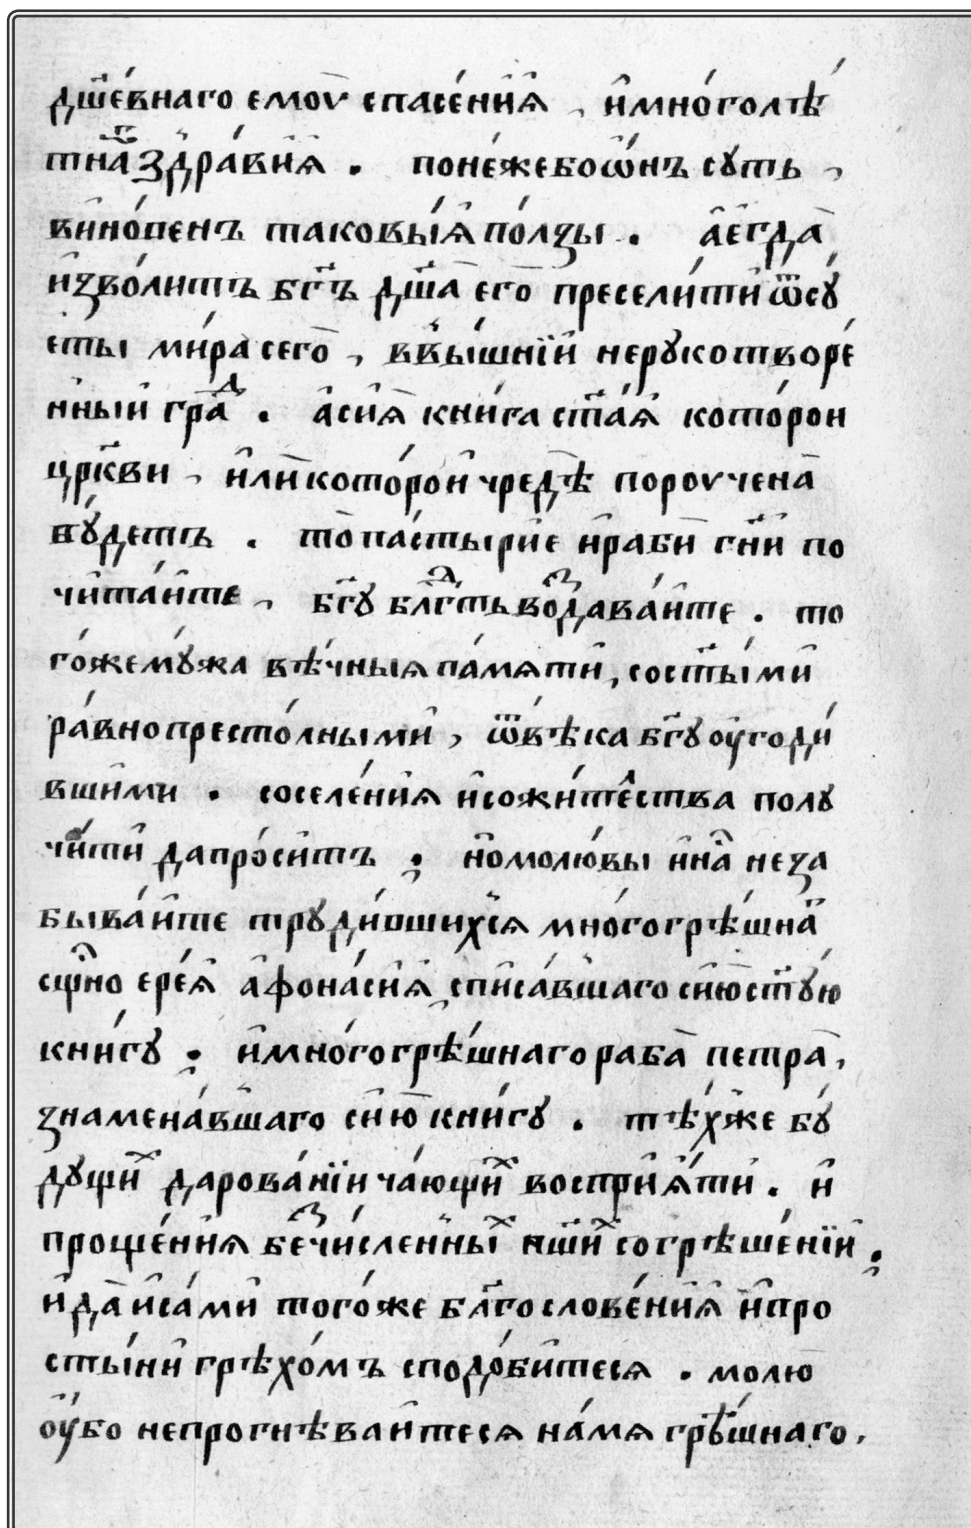 дш҃е́внаго емоу̀ спасе́нїѧ , и҆мно́голѣ́
тнаⷢ҇ здра́вїѧ . поне́жебоѡ҆́нъ сѹть ,
вино́венъ таковы́ѧ по́лꙁы . а҆егда̀
и҆ꙁво́литъ бг҃ъ дш҃а̀ его̀ пресели́ти ѿсѹ́
еты ми́ра сего̀ , ввы́шнїи нерꙋкотворе́
нныи граⷣ . а҆сиѧ̀ кни́га ст҃а́ѧ кото́рои
цр҃кви , и҆лѝ кото́рои чредѣ̀ пороучена̀
бꙋ́детъ . то̀ па́стырїе и҆рабѝ гн҃и по
чита́ите , бг҃ꙋ бл҃гⷣть воⷥдава́ите . то
го́жемꙋ́жа вѣ́чныѧ па́мѧти , сост҃ы́ми
ра́внопресто́лными , ѿвѣ́ка бг҃ꙋ оу҆годи́
вшими . соселе́нїѧ и҆сожи́тества полꙋ
чи́ти да про́ситъ . и҆омолю́вы и҆на҃ неꙁа
быва́ите трꙋди́вшихсѧ мно́гогрѣ́шнаⷢ҇
сщ҃нно ере́ѧ а҆фона́сїѧ списа́вшаго сию̀ст҃ꙋ́ю
кни́гꙋ . и҆мно́гогрѣ́шнаго раба̀ петра̀ ,
ꙁнамена́вшаго сию̀ кни́гꙋ . тѣ́хже бꙋ́
дꙋщиⷯ дарова́нїи ча́ющиⷯ воспрїѧ́ти . и҆
проще́нїѧ беⷥчи́сленныⷯ нш҃иⷯ согрѣше́нїи .
и҆да̀ и҆са́ми того́же бл҃гослове́нїѧ и҆про
сты́ни грѣхо́мъ сподо́битесѧ . молю̀
оу҆́бо непрогнѣва́итесѧ на́мѧ грѣ́шнаго ,